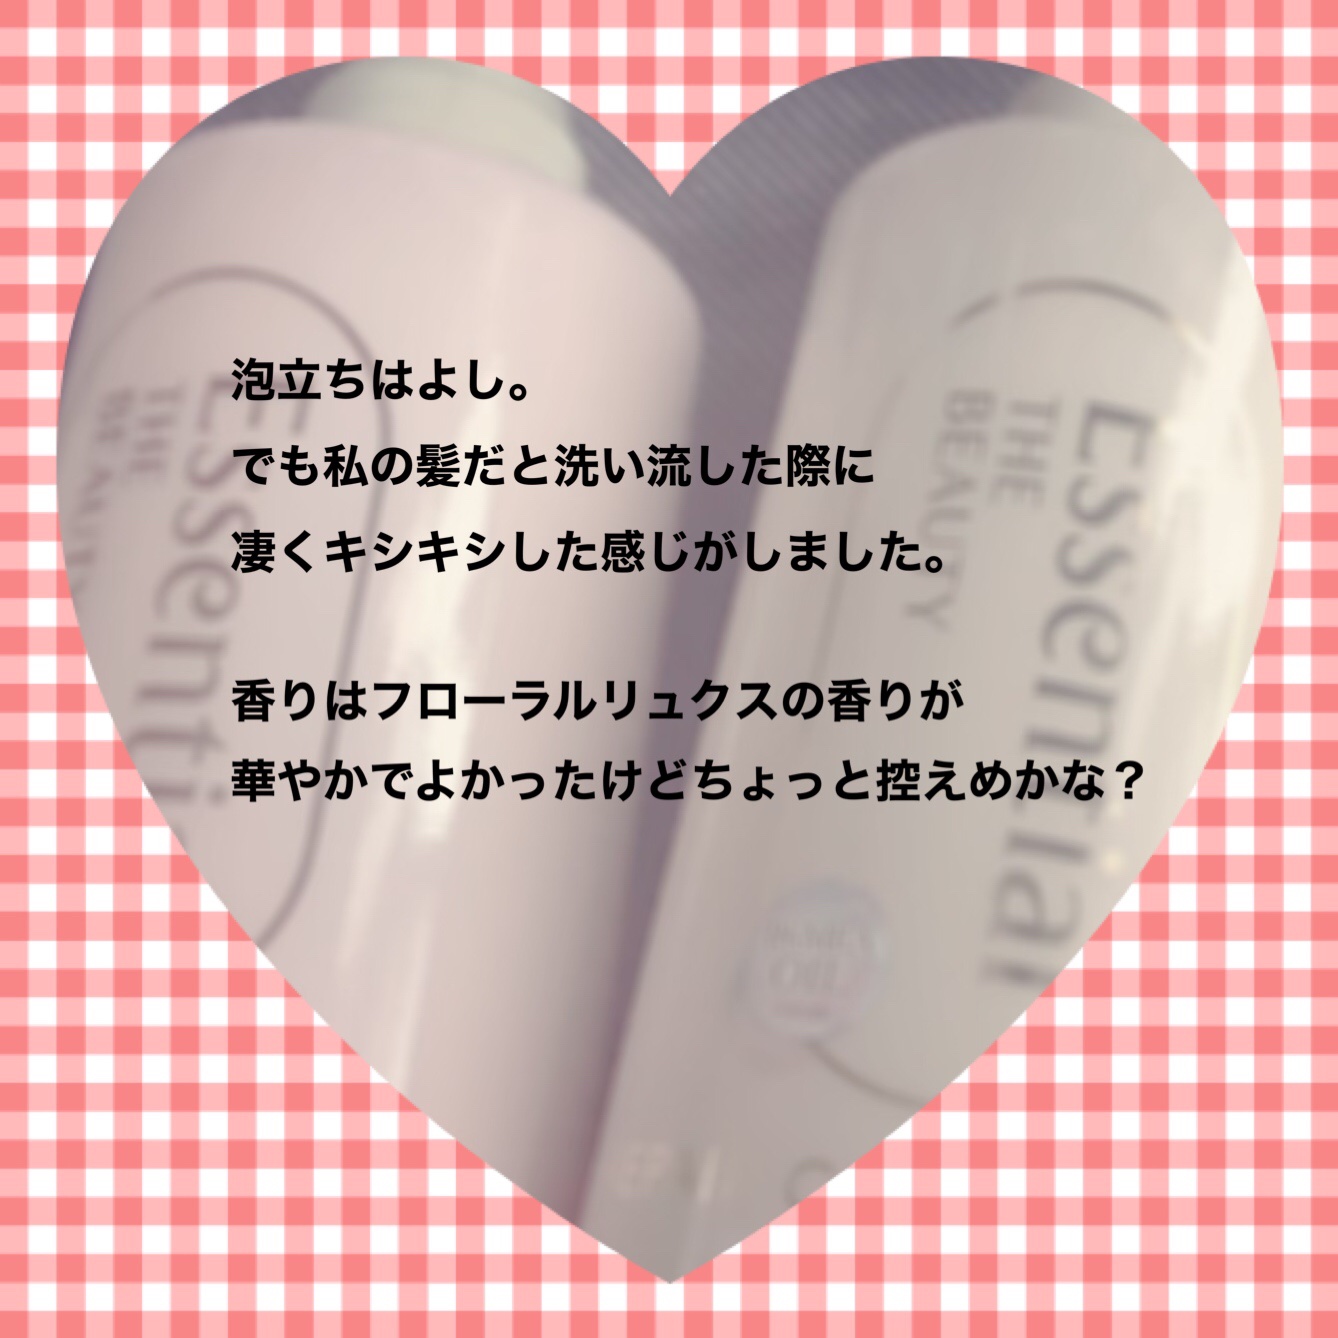 泡立ちはよし。
でも私の髪だと洗い流した際に
凄くキシキシした感じがしました。
香りはフローラルリュクスの香りが
華やかでよかったけどちょっと控えめかな？
Essenti
THE
BEAUTY
Essential
THE
BEAUTY
OIL